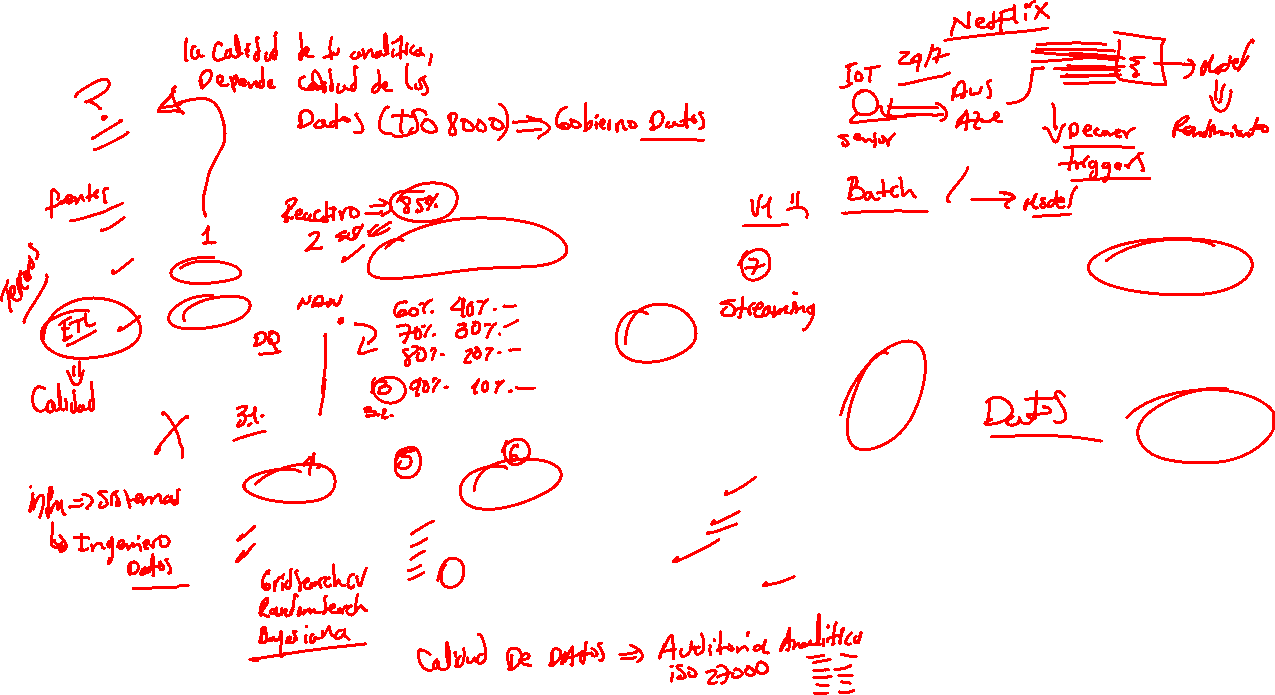 la calidad de tu analitica,
Depende calidad de los
Datos (ISO 8000) => Gobierno Datos
?
fuentes
1
ETL
Calidad
X
Reactivo => 85%
2
DQ
60% 40%
70% 30%
80% 20%
3 90% 10%
3.1.
4.
5
6
=> Sistemas
Ingeniero
Datos
GridSearchCV
RandomSearch
Bayesiana
Calidad De Datos => Auditoria Analitica
iso 27000
NetFlix
24/7
IoT
Sensor
AWS
Model
Rendimiento
triggers
Batch
Model
V1
7
Streaming
Datos